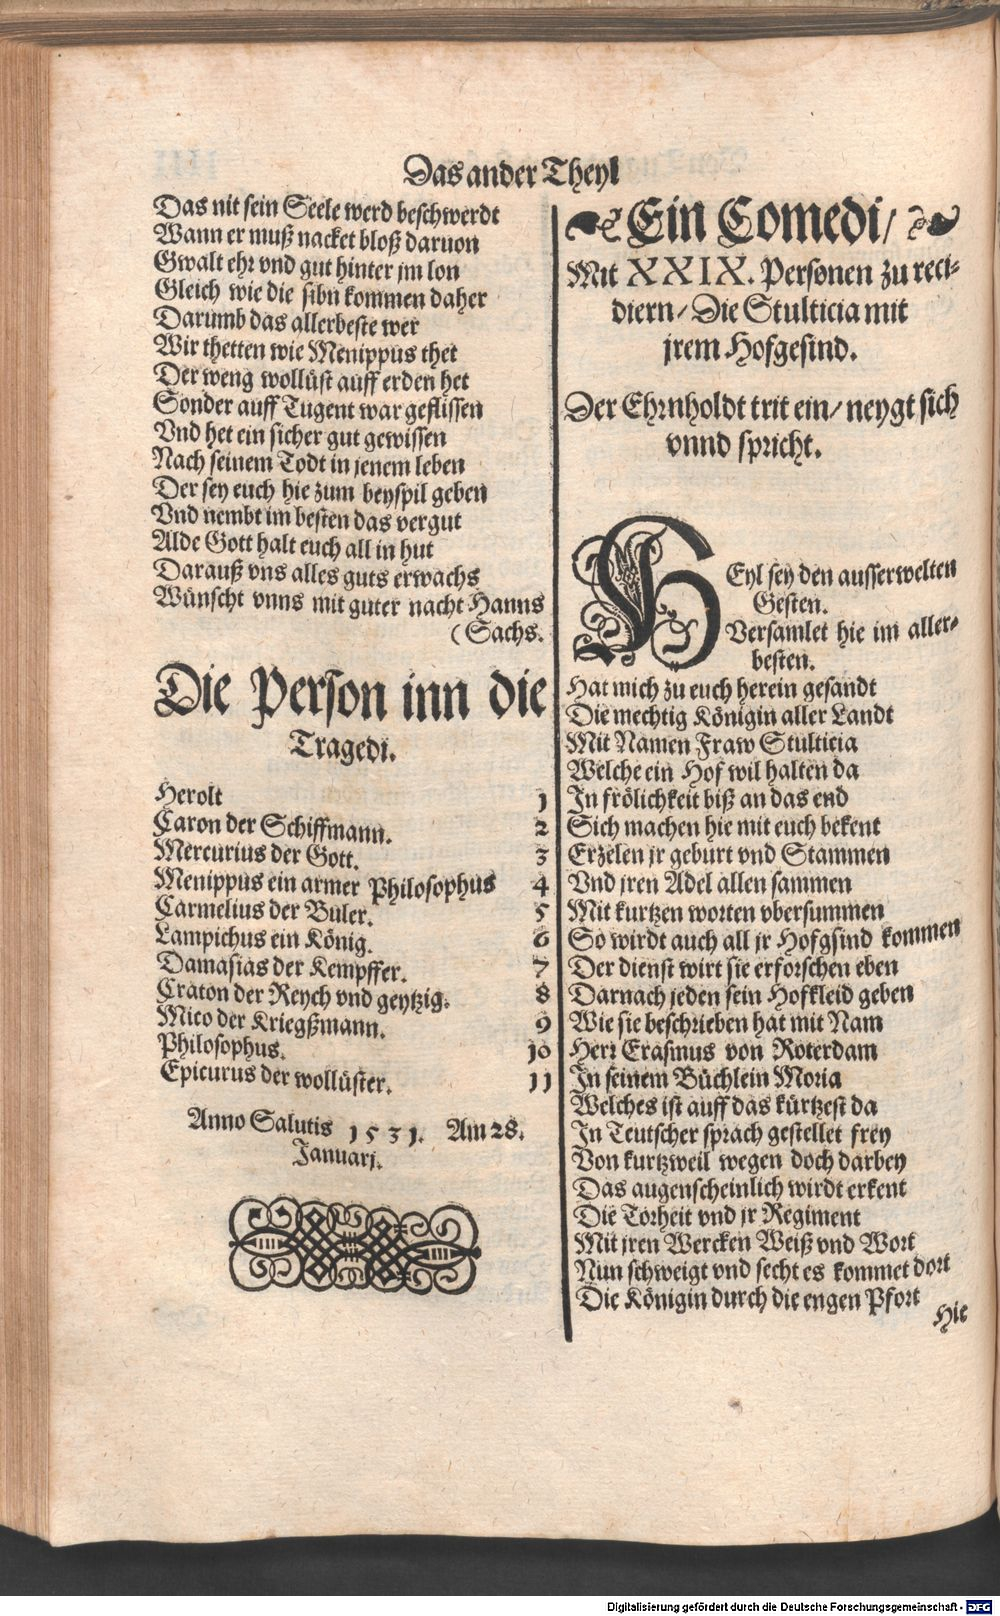 Das ander Theyl
Das nit sein Seele werd beschwerdt
Wann er muß nacket bloß daruon
Gwalt ehr vnd gut hinter jm lon
Gleich wie die sibn kommen daher
Darumb das allerbeste wer
Wir thetten wie Menippus thet
Der weng wollüst auff erden het
Sonder auff Tugent war geflissen
Vnd het ein sicher gut gewissen
Nach seinem Todt in jenem leben
Der sey euch hie zum beyspil geben
Vnd nembt im besten das vergut
Alde Gott halt euch all in hut
Darauß vns alles guts erwachs
Wünscht vnns mit guter nacht Hanns
(Sachs.
Die Person inn die
Tragedi.
Herolt 1
Caron der Schiffmann. 2
Mercurius der Gott. 3
Menippus ein armer Philosophus 4
Carmelius der Buler. 5
Lampichus ein König. 6
Damasias der Kempffer. 7
Craton der Reych vnd geytzig. 8
Mico der Kriegßmann. 9
Philosophus. 10
Epicurus der wollüster. 11
Anno Salutis 1531. Am 28.
Januarj.
Ein Comedi/
Mit XXIX. Personen zu reci-
diern/ Die Stulticia mit
jrem Hofgesind.
Der Ehrnholdt trit ein/ neygt sich
vnnd spricht.
HEyl sey den ausserwelten
Gesten.
Versamlet hie im aller-
besten.
Hat mich zu euch herein gesandt
Die mechtig Königin aller Landt
Mit Namen Fraw Stulticia
Welche ein Hof wil halten da
In frölichkeit biß an das end
Sich machen hie mit euch bekent
Erzelen jr geburt vnd Stammen
Vnd jren Adel allen sammen
Mit kurtzen worten vbersummen
So wirdt auch all jr Hofgsind kommen
Der dienst wirt sie erforschen eben
Darnach jeden sein Hofkleid geben
Wie sie beschrieben hat mit Nam
Herr Erasmus von Roterdam
In seinem Büchlein Moria
Welches ist auff das kürtzest da
In Teutscher sprach gestellet frey
Von kurtzweil wegen doch darbey
Das augenscheinlich wirdt erkent
Die Torheit vnd jr Regiment
Mit jren Wercken Weiß vnd Wort
Nun schweigt vnd secht es kommet dort
Die Königin durch die engen Pfort
Hie
Digitalisierung gefördert durch die Deutsche Forschungsgemeinschaft - DFG